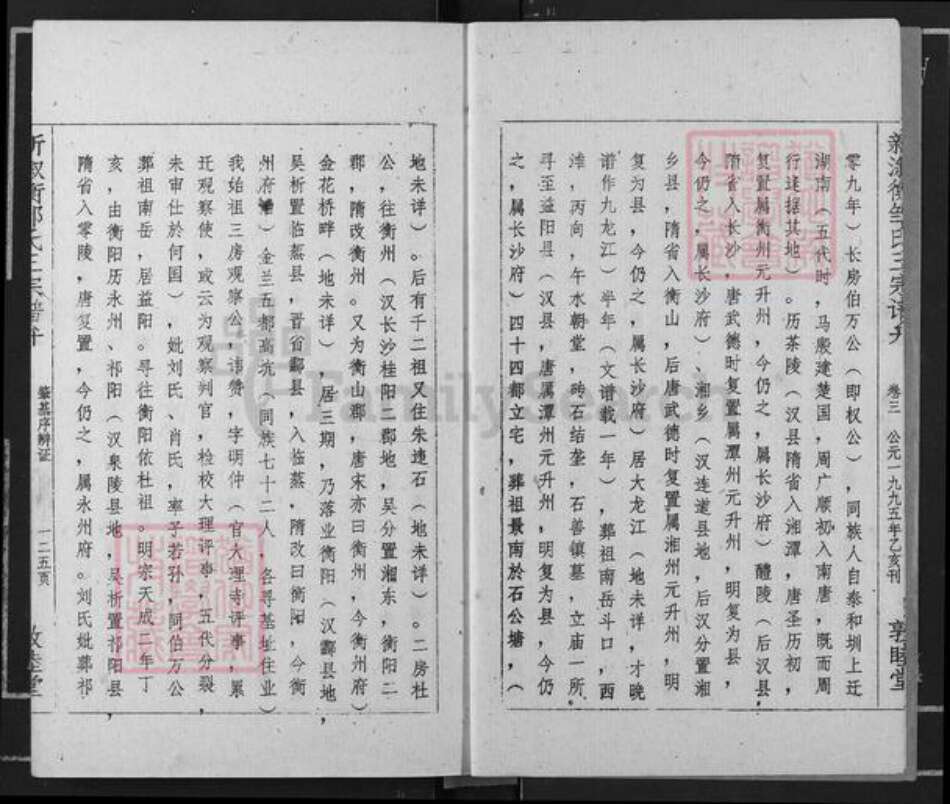 卷三 公元一九九五年乙亥刊 敦睦堂
零九年）长房伯万公（即权公），同族人自泰和圳上迁
湖南（五代时，马殷建楚国，周广顺初入南唐，既而周
行逢据其地）。历茶陵（汉县隋省入湘潭，唐圣历初，
复置属衡州元升州，今仍之，属长沙府）醴陵（后汉县，
隋省入长沙，唐武德时复置属潭州元升州，明复为县，
今仍之，属长沙府）、湘乡（汉连道县地，后汉分置湘
乡县，隋省入衡山，后唐武德时复置属湘州元升州，明
复为县，今仍之，属长沙府）居大龙江（地未详，才晚
谱作九龙江）半年（文谱载一年），葬祖南岳斗口，酉
滩，丙向，午水朝堂，砖石结垄，石善镇墓，立庙一所。
寻至益阳县（汉县，唐属潭州元升州，明复为县，今仍
之，属长沙府）四十四都立宅，葬祖景南於石公塘，（
地未详）。后有千二祖又住朱连石（地未详）。二房杜
公，往衡州（汉长沙桂阳二郡地，吴分置湘东，衡阳二
郡，隋改衡州。又为衡山郡，唐宋亦曰衡州，今衡州府）
金花桥畔（地未详）居三期，乃落业衡阳（汉酃县地，
吴析置临蒸县，晋省酃县，入临蒸，隋改曰衡阳，今衡
州府）金兰五都高坑（同族七十二人，各寻基址住业）
我始祖三房观察公，讳赞，字明仲（官大理寺评事，累
迁观察使，或云为观察判官，检校大理评事，五代分裂，
未审仕於何国），妣刘氏、肖氏，率子若孙，同伯万公
葬祖南岳，居益阳。寻往衡阳依杜祖。明宗天成二年丁
亥，由衡阳历永州、祁阳（汉泉陵县地，吴析置祁阳县，
隋省入零陵，唐复置，今仍之，属永州府。刘氏妣葬祁
肇基序辨证 一二五页
敦睦堂